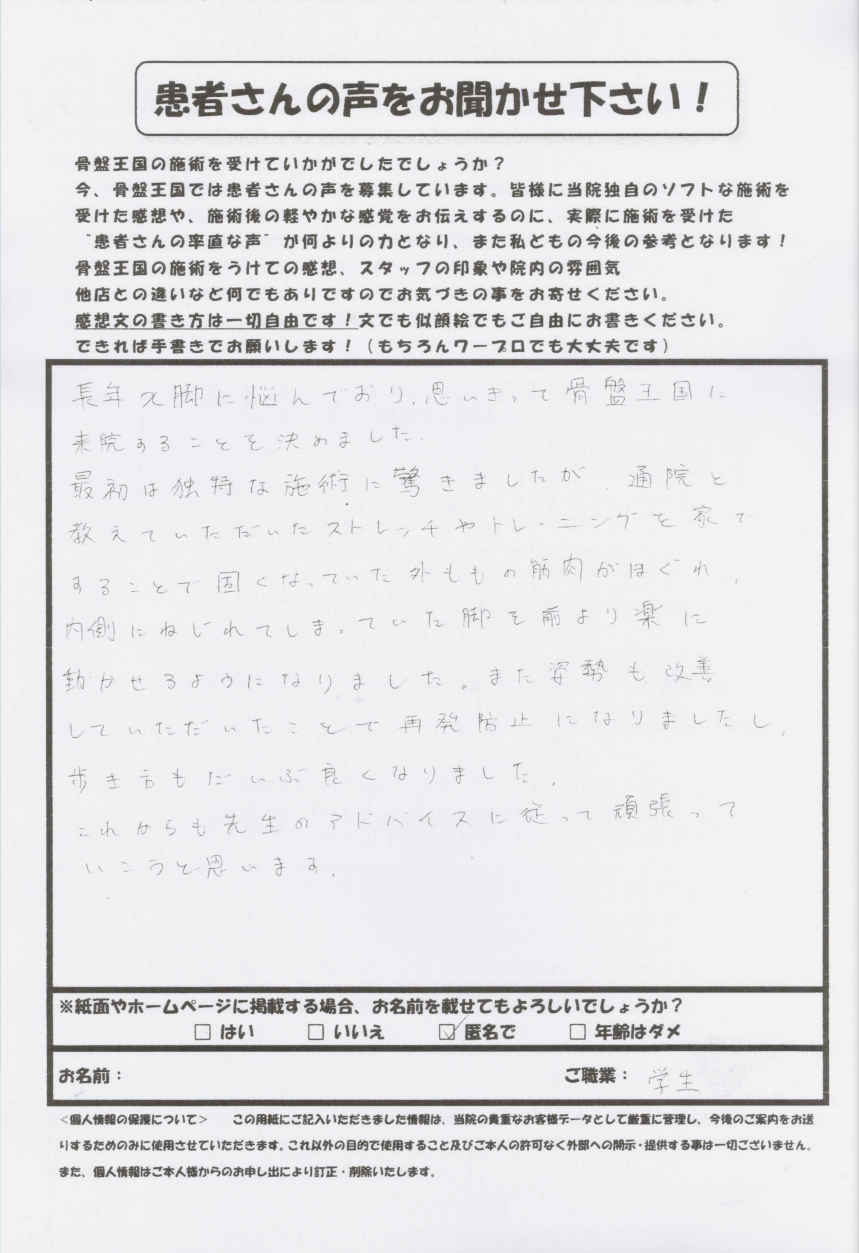 患者さんの声をお聞かせ下さい！
骨盤王国の施術を受けていかがでしたでしょうか？
今、骨盤王国では患者さんの声を募集しています。皆様に当院独自のソフトな施術を
受けた感想や、施術後の軽やかな感覚をお伝えするのに、実際に施術を受けた
“患者さんの率直な声”が何よりの力となり、また私どもの今後の参考となります！
骨盤王国の施術をうけての感想、スタッフの印象や院内の雰囲気
他店との違いなど何でもありですのでお気づきの事をお寄せください。
感想文の書き方は一切自由です！文でも似顔絵でもご自由にお書きください。
できれば手書きでお願いします！（もちろんワープロでも大丈夫です）
長年X脚に悩んでおり、思いきって骨盤王国に
来院することを決めました。
最初は独特な施術に驚きましたが、通院と
教えていただいたストレッチやトレーニングを家で
することで固くなっていた外ももの筋肉がほぐれ、
内側にねじれてしまっていた脚を前より楽に
動かせるようになりました。また姿勢も改善
していただいたことで再発防止になりましたし、
歩き方もだいぶ良くなりました。
これからも先生のアドバイスに従って頑張って
いこうと思います。
※紙面やホームページに掲載する場合、お名前を載せてもよろしいでしょうか？
□ はい □ いいえ ☑ 匿名で □ 年齢はダメ
お名前： ご職業： 学生
＜個人情報の保護について＞ この用紙にご記入いただきました情報は、当院の貴重なお客様データとして厳重に管理し、今後のご案内をお送
りするためのみに使用させていただきます。これ以外の目的で使用すること及びご本人の許可なく外部への開示・提供する事は一切ございません。
また、個人情報はご本人様からのお申し出により訂正・削除いたします。